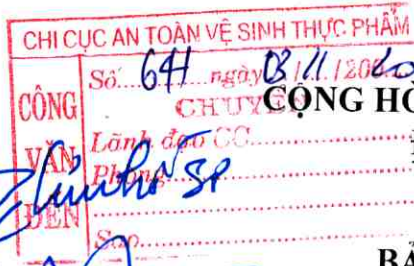 CHI CỤC AN TOÀN VỆ SINH THỰC PHẨM
CÔNG VĂN ĐẾN
Số 641 ngày 03/11/20
CHUYỂN
CỘNG HÒ
Lãnh đạo CC
Phòng SP
Sao
BẢ